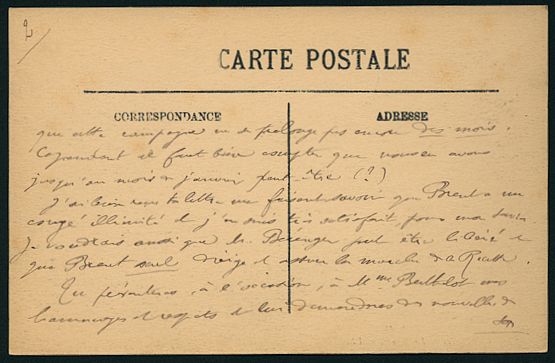 2/
CARTE POSTALE
CORRESPONDANCE
ADRESSE
que cette campagne ne se prolonge pas encore des mois.
Cependant il faut bien compter que nous en avons
jusqu'au mois de janvier peut être (?)
J'ai bien reçu ta lettre me faisant savoir que Brent a un
congé illimité et j'en suis très satisfait pour ma
Je voudrais aussi que Mr Béranger peut être libéré et
que Brent seul dirige et assure la marche de la
Tu présenteras, à l'occasion, à Mme Berthelot mes
hommages et respects et lui demanderas des nouvelles de